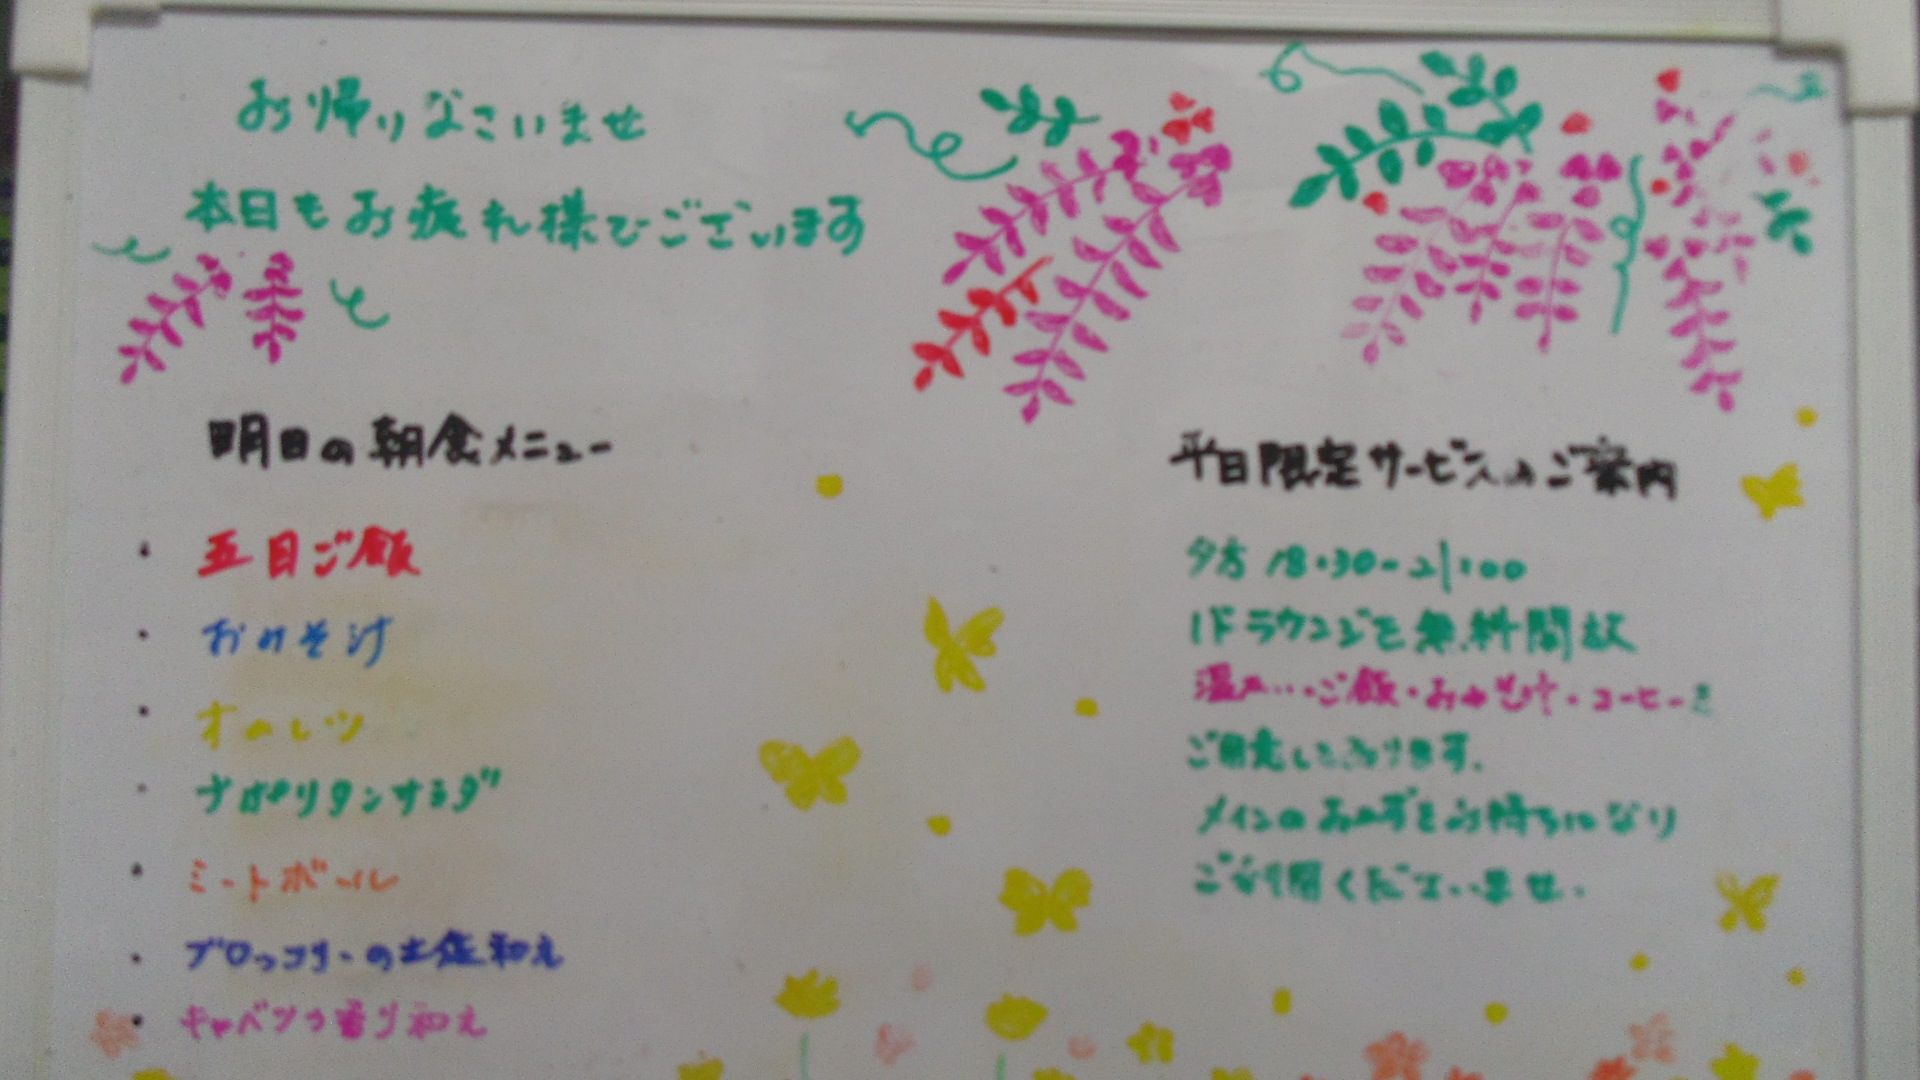 お帰りなさいませ
本日もお疲れ様でございます
明日の朝食メニュー
・五目ご飯
・おみそ汁
・オムレツ
・ナポリタンサラダ
・ミートボール
・ブロッコリーの土佐和え
・キャベツの香り和え
平日限定サービスのご案内
夕方 18:30-21:00
1Fラウンジを無料開放
温かい…ご飯・おみそ汁・コーヒーを
ご用意しております。
メインのおかずをお持ちになり
ご利用くださいませ。